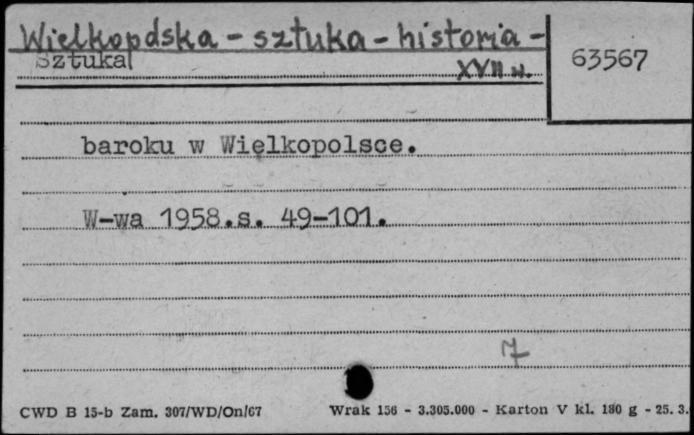 Wielkopolska - sztuka - historia -
Sztuka
XVII w.
63567
baroku w Wielkopolsce.
W-wa 1958.s. 49-101.
7
CWD B 15-b Zam. 307/WD/On/67
Wrak 156 - 3.305.000 - Karton V kl. 180 g - 25. 3.